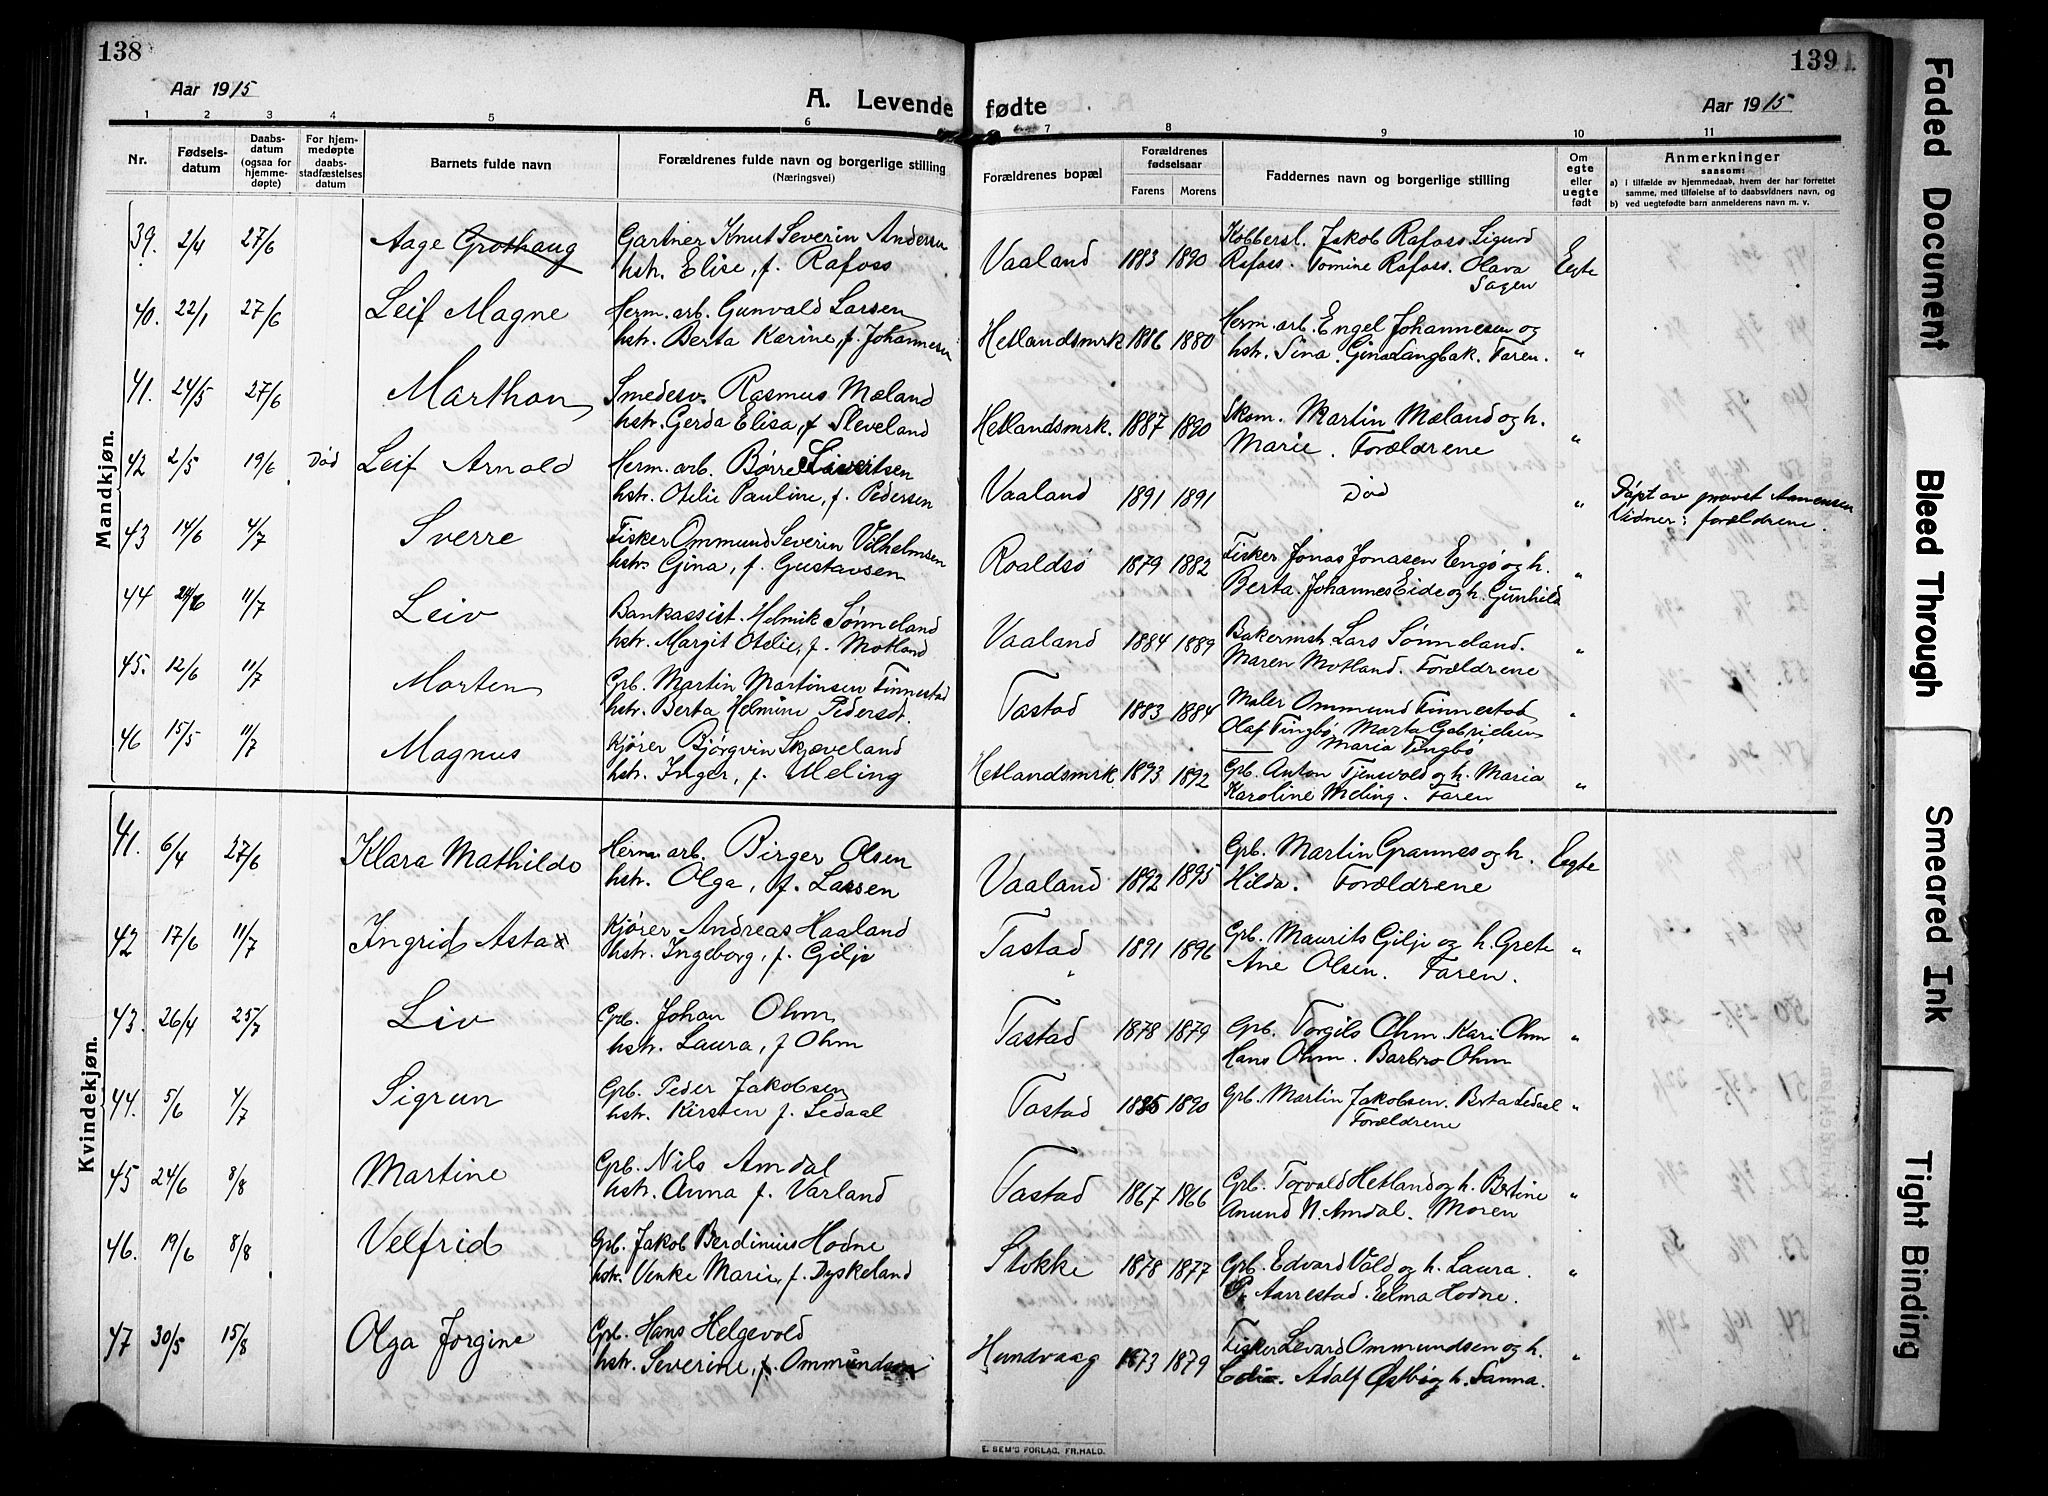 138
Aar 1915
A. Levende fødte
Aar 1915
139
1 2 3 4 5 6 7 8 9 10 11
Nr.
Fødsels-datum
Daabs-datum (ogsaa for hjemme-døpte)
For hjem-medøpte daabs-stadfæstelses datum
Barnets fulde navn
Forældrenes fulde navn og borgerlige stilling (Næringsvei)
Forældrenes bopæl
Forældrenes fødselsaar
Farens Morens
Faddernes navn og borgerlige stilling
Om egte eller uegte født
Anmerkninger
saasom:
a) i tilfælde av hjemmedaab, hvem der har forrettet samme, med tilføielse af to daabsvidners navn, og
b) ved uegtefødte barn anmelderens navn m. v.
Mandkjøn.
39. 2/4 27/6 Aage Grothaug Gartner Knut Severin Andersen
hstr. Elise, f. Rafoss Vaaland 1883 1890 Kobbersl. Jakob Rafoss Sigurd
Rafoss. Tomine Rafoss. Olava
Sagen Egte
40. 22/1 27/6 Leif Magne Herm. arb. Gunvald Larsen
hstr. Berta Karine, f. Johannesen Hetlandsmrk 1886 1880 Herm. arb. Engel Johannesen og
hstr. Sina. Gina Langbak. Faren. "
41. 24/5 27/6 Marthon Smedesv. Rasmus Mæland
hstr. Gerda Elisa, f. Sleveland Hetlandsmrk. 1887 1890 Skom. Martin Mæland og h.
Marie. Forældrene "
42 2/5 19/6 Død Leif Arnold Herm. arb. Børre Sivertsen
hstr. Otelie Pauline, f. Pedersen Vaaland 1891 1891 Død " Døpt av provst Aanensen
Vidner: forældrene.
43 14/6 4/7 Sverre Fisker Ommund Severin Vilhelmsen
hstr. Gina, f. Gustavsen Roaldsø 1879 1882 Fisker Jonas Jonasen Engø og h.
Berta. Johannes Eide og h. Gunhild "
44 11/7 Leiv Bankassist. Helmik Sømmeland
hstr. Margit Otelie, f. Motland Vaaland 1884 1889 Bakermstr. Lars Sømmeland.
Maren Motland. Forældrene "
45. 12/6 11/7 Morten Gpb. Martin Martinsen Finnestad
hstr. Berta Helmine Pedersdt. Tastad 1883 1884 Maler Ommund Finnestad
Olaf Tingbø, Marta Gabrielsen
Maria Tingbø "
46 15/5 11/7 Magnus Kjører Bjørgvin Skjæveland
hstr. Inger, f. Meling Hetlandsmrk 1893 1892 Gpb. Anton Tjensvold og h. Maria
Karoline Meling. Faren "
Kvindekjøn.
41. 6/4 27/6 Klara Mathilde Herm arb. Birger Olsen
hstr. Olga, f. Larsen Vaaland 1892 1895 Gpb. Martin Grannes og h.
Hilda. Forældrene Egte
42 17/6 11/7 Ingrid Asta Kjører Andreas Haaland
hstr. Ingeborg, f. Gilje Tastad 1891 1896 Gpb. Maurits Gilje og h. Grete
Ane Olsen. Faren. "
43. 26/4 25/7 Liv Gpb. Johan Ohm
hstr. Laura, f Ohm Tastad 1878 1879 Gpb. Torgils Ohm. Kari Ohm
Hans Ohm. Barbro Ohm "
44. 5/6 4/7 Sigrun Gpb. Peder Jakobsen
hstr. Kirsten f. Ledaal Tastad 1885 1890 Gpb. Martin Jakobsen. Berta Ledaal
Forældrene "
45 24/6 8/8 Martine Gpb. Nils Amdal
hstr. Anna f. Varland Tastad 1867 1866 Gpb. Torvald Hetland og h. Bertine
Anund N. Amdal. Moren "
46. 19/6 8/8 Velfrid Gpb. Jakob Berdinius Hodne
hstr. Venke Marie, f. Dyskeland Stokke 1878 1877 Gpb. Edvard Vold og h. Laura.
P. Aarrestad. Elma Hodne. "
47 30/5 15/8 Olga Jorgine Gpb. Hans Helgevold
hstr. Severine, f. Ommundsen Hundvaag 1873 1879 Fisker Levard Ommundsen og h.
Adolf Østbø og h. Sanna. "
E. SEM'S FORLAG. FR.HALD.
Faded Document
Bleed Through
Smeared Ink
Tight Binding